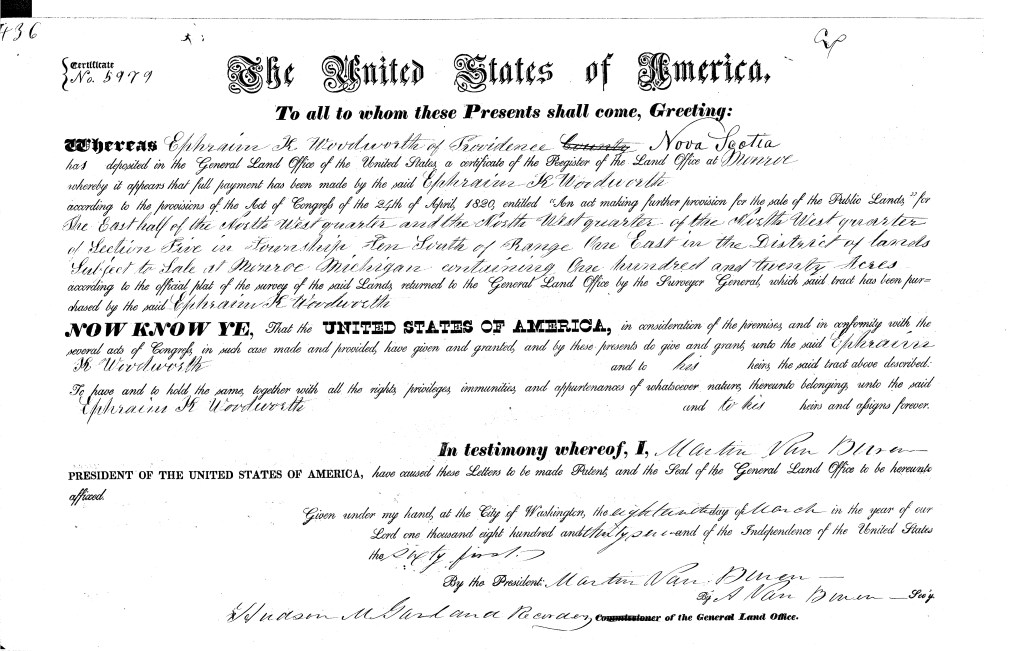 436
Certificate
No. 5979
The United States of America,
To all to whom these Presents shall come, Greeting:
Whereas Ephraim K Woodworth of Providence County Nova Scotia
has deposited in the General Land Office of the United States, a certificate of the Register of the Land Office at Monroe
whereby it appears that full payment has been made by the said Ephraim K Woodworth
according to the provisions of the Act of Congress of the 24th of April, 1820, entitled "An act making further provision for the sale of the Public Lands," for
The East half of the North West quarter and the North West quarter of the North West quarter
of Section Five in Township Ten South of Range One East in the District of lands
Subject to Sale at Monroe Michigan containing One hundred and twenty Acres
according to the official plat of the survey of the said Lands, returned to the General Land Office by the Surveyor General, which said tract has been pur-
chased by the said Ephraim K Woodworth
NOW KNOW YE, That the UNITED STATES OF AMERICA, in consideration of the premises, and in conformity with the
several acts of Congress, in such case made and provided, have given and granted, and by these presents do give and grant, unto the said Ephraim
K Woodworth and to his heirs, the said tract above described:
To have and to hold the same, together with all the rights, privileges, immunities, and appurtenances of whatsoever nature, thereunto belonging, unto the said
Ephraim K Woodworth and to his heirs and assigns forever.
In testimony whereof, I, Martin Van Buren
PRESIDENT OF THE UNITED STATES OF AMERICA, have caused these Letters to be made Patent, and the Seal of the General Land Office to be hereunto
affixed.
Given under my hand, at the City of Washington, the eighteenth day of March in the year of our
Lord one thousand eight hundred and thirty seven and of the Independence of the United States
the sixty first.
By the President: Martin Van Buren
By A Van Buren Sec'y.
Hudson M Garland Recorder Commissioner of the General Land Office.